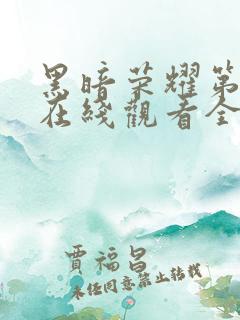 黑暗荣耀第
在线觀看全
賈福昌
未经同意禁止转载